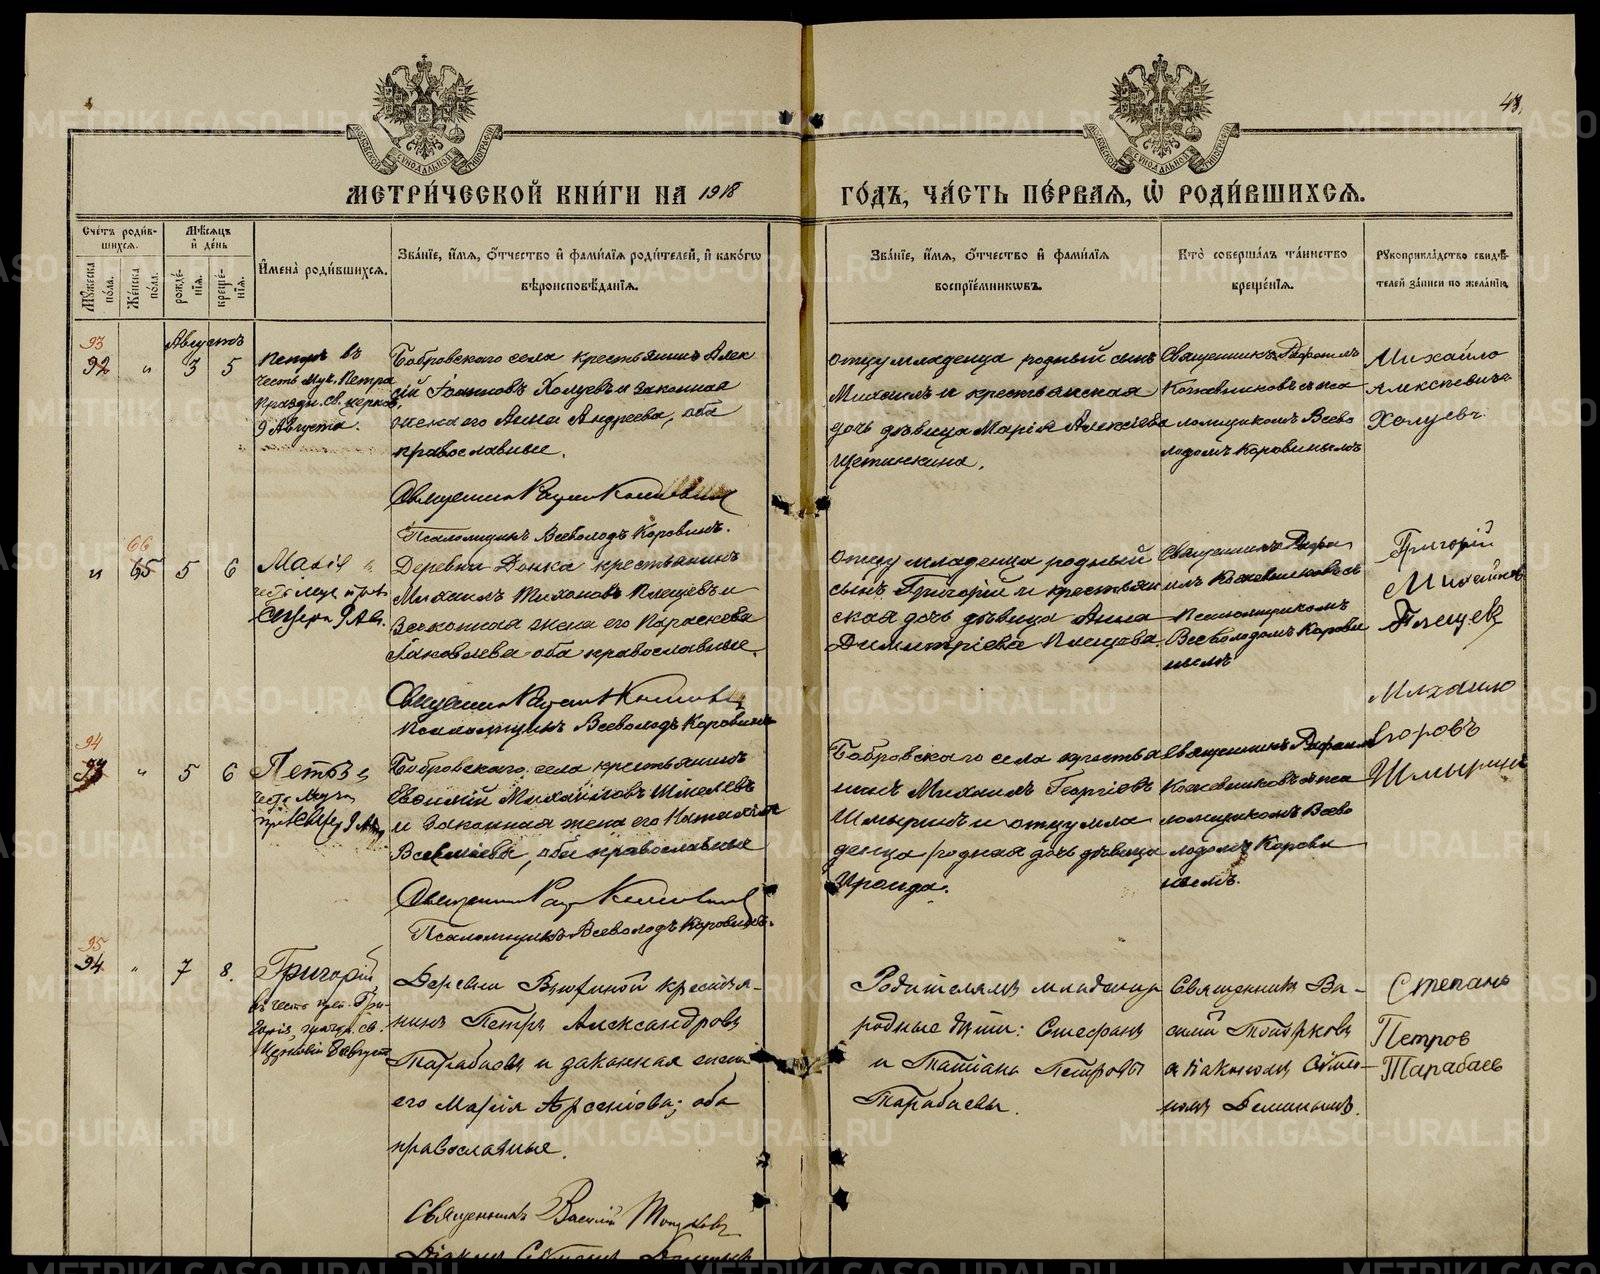 43
МЕТРИ́ЧЕСКОЙ КНИ́ГИ НА 1918 ГО́ДЪ, ЧА́СТЬ ПЕ́РВАЯ, Ѡ҆ РОДИ́ВШИХСЯ.
Сче́тъ роди́в-
шихся.
Му́жеска по́ла.
Же́нска по́ла.
Мѣ́сяцъ и҆ де́нь
рожде́-
нія.
креще́-
нія.
И҆мена̀ роди́вшихся.
Зва́ніе, и҆́мя, ѻ҆́тчество и҆ фами́лія роди́телей, и҆ како́гѡ
вѣроисповѣ́данія.
Зва́ніе, и҆́мя, ѻ҆́тчество и҆ фами́лія
воспріе́мникѡвъ.
Кто̀ соверша́лъ та́инство
креще́нія.
Рꙋкоприкла́дство свидѣ́-
телей за́писи по жела́нію.
Августъ
93
92 " 3 5
Петръ въ
честь муч. Петра
праздн. св. церков.
9 Августа.
Бобровскаго села крестьянинъ Алек
сій Іоанновъ Холуевъ и законная
жена его Анна Андреева, оба
православные.
Священникъ
Псаломщикъ Всеволодъ Коровинъ.
отцу младенца родный сынъ
Михаилъ и крестьянская
дочь дѣвица Марія Алексіева
Щетинкина.
Священникъ Рафаилъ
Кожевниковъ съ пса
ломщикомъ Всево
лодомъ Коровинымъ
Михайло
Алексѣевичъ
Холуевъ
66
" 65 5 6
Марія
9 Ав.
Деревни крестьянинъ
Михаилъ Тихоновъ Плещевъ и
законная жена его Параскева
Іаковлева оба православные.
Священникъ
Псаломщикъ Всеволодъ Коровинъ
отцу младенца родный
сынъ Григорій и крестьян
ская дочь дѣвица Анна
Димитріева Плещева.
Священникъ Рафа
илъ Кожевниковъ съ
Псаломщикомъ
Всеволодомъ Корови
нымъ
Григорій
Михайловъ
Плещевъ
94
93 " 5 6
Петръ въ
честь муч.
Бобровскаго села крестьянинъ
Евѳимій Михаиловъ Шмелевъ
и законная жена его
оба православные
Священникъ
Псаломщикъ Всеволодъ Коровинъ.
Бобровскаго села крестья
нинъ Михаилъ Георгіевъ
Шмыринъ и отцу мла
денца родная дочь дѣвица
Ираида.
Священникъ Рафаилъ
Кожевниковъ съ пса
ломщикомъ Всево
лодомъ Корови
нымъ.
Михаило
Егоровъ
Шмыринъ
95
94 " 7 8.
Григорій
въ честь преп. Гри-
горія, праздн. св.
церковію 8 августа
Деревни крестья-
нинъ Петръ Александровъ
Тарабаевъ и законная жена
его Марія Арсеніова; оба
православные.
Священникъ Василій
Діаконъ
Родителямъ младенца
родные дѣти: Стефанъ
и Татіана Петровы
Тарабаевы.
Священникъ Ва-
силій Топорковъ
съ діакономъ
Деминымъ.
Степанъ
Петров
Тарабаевъ
METRIKI.GASO-URAL.RU